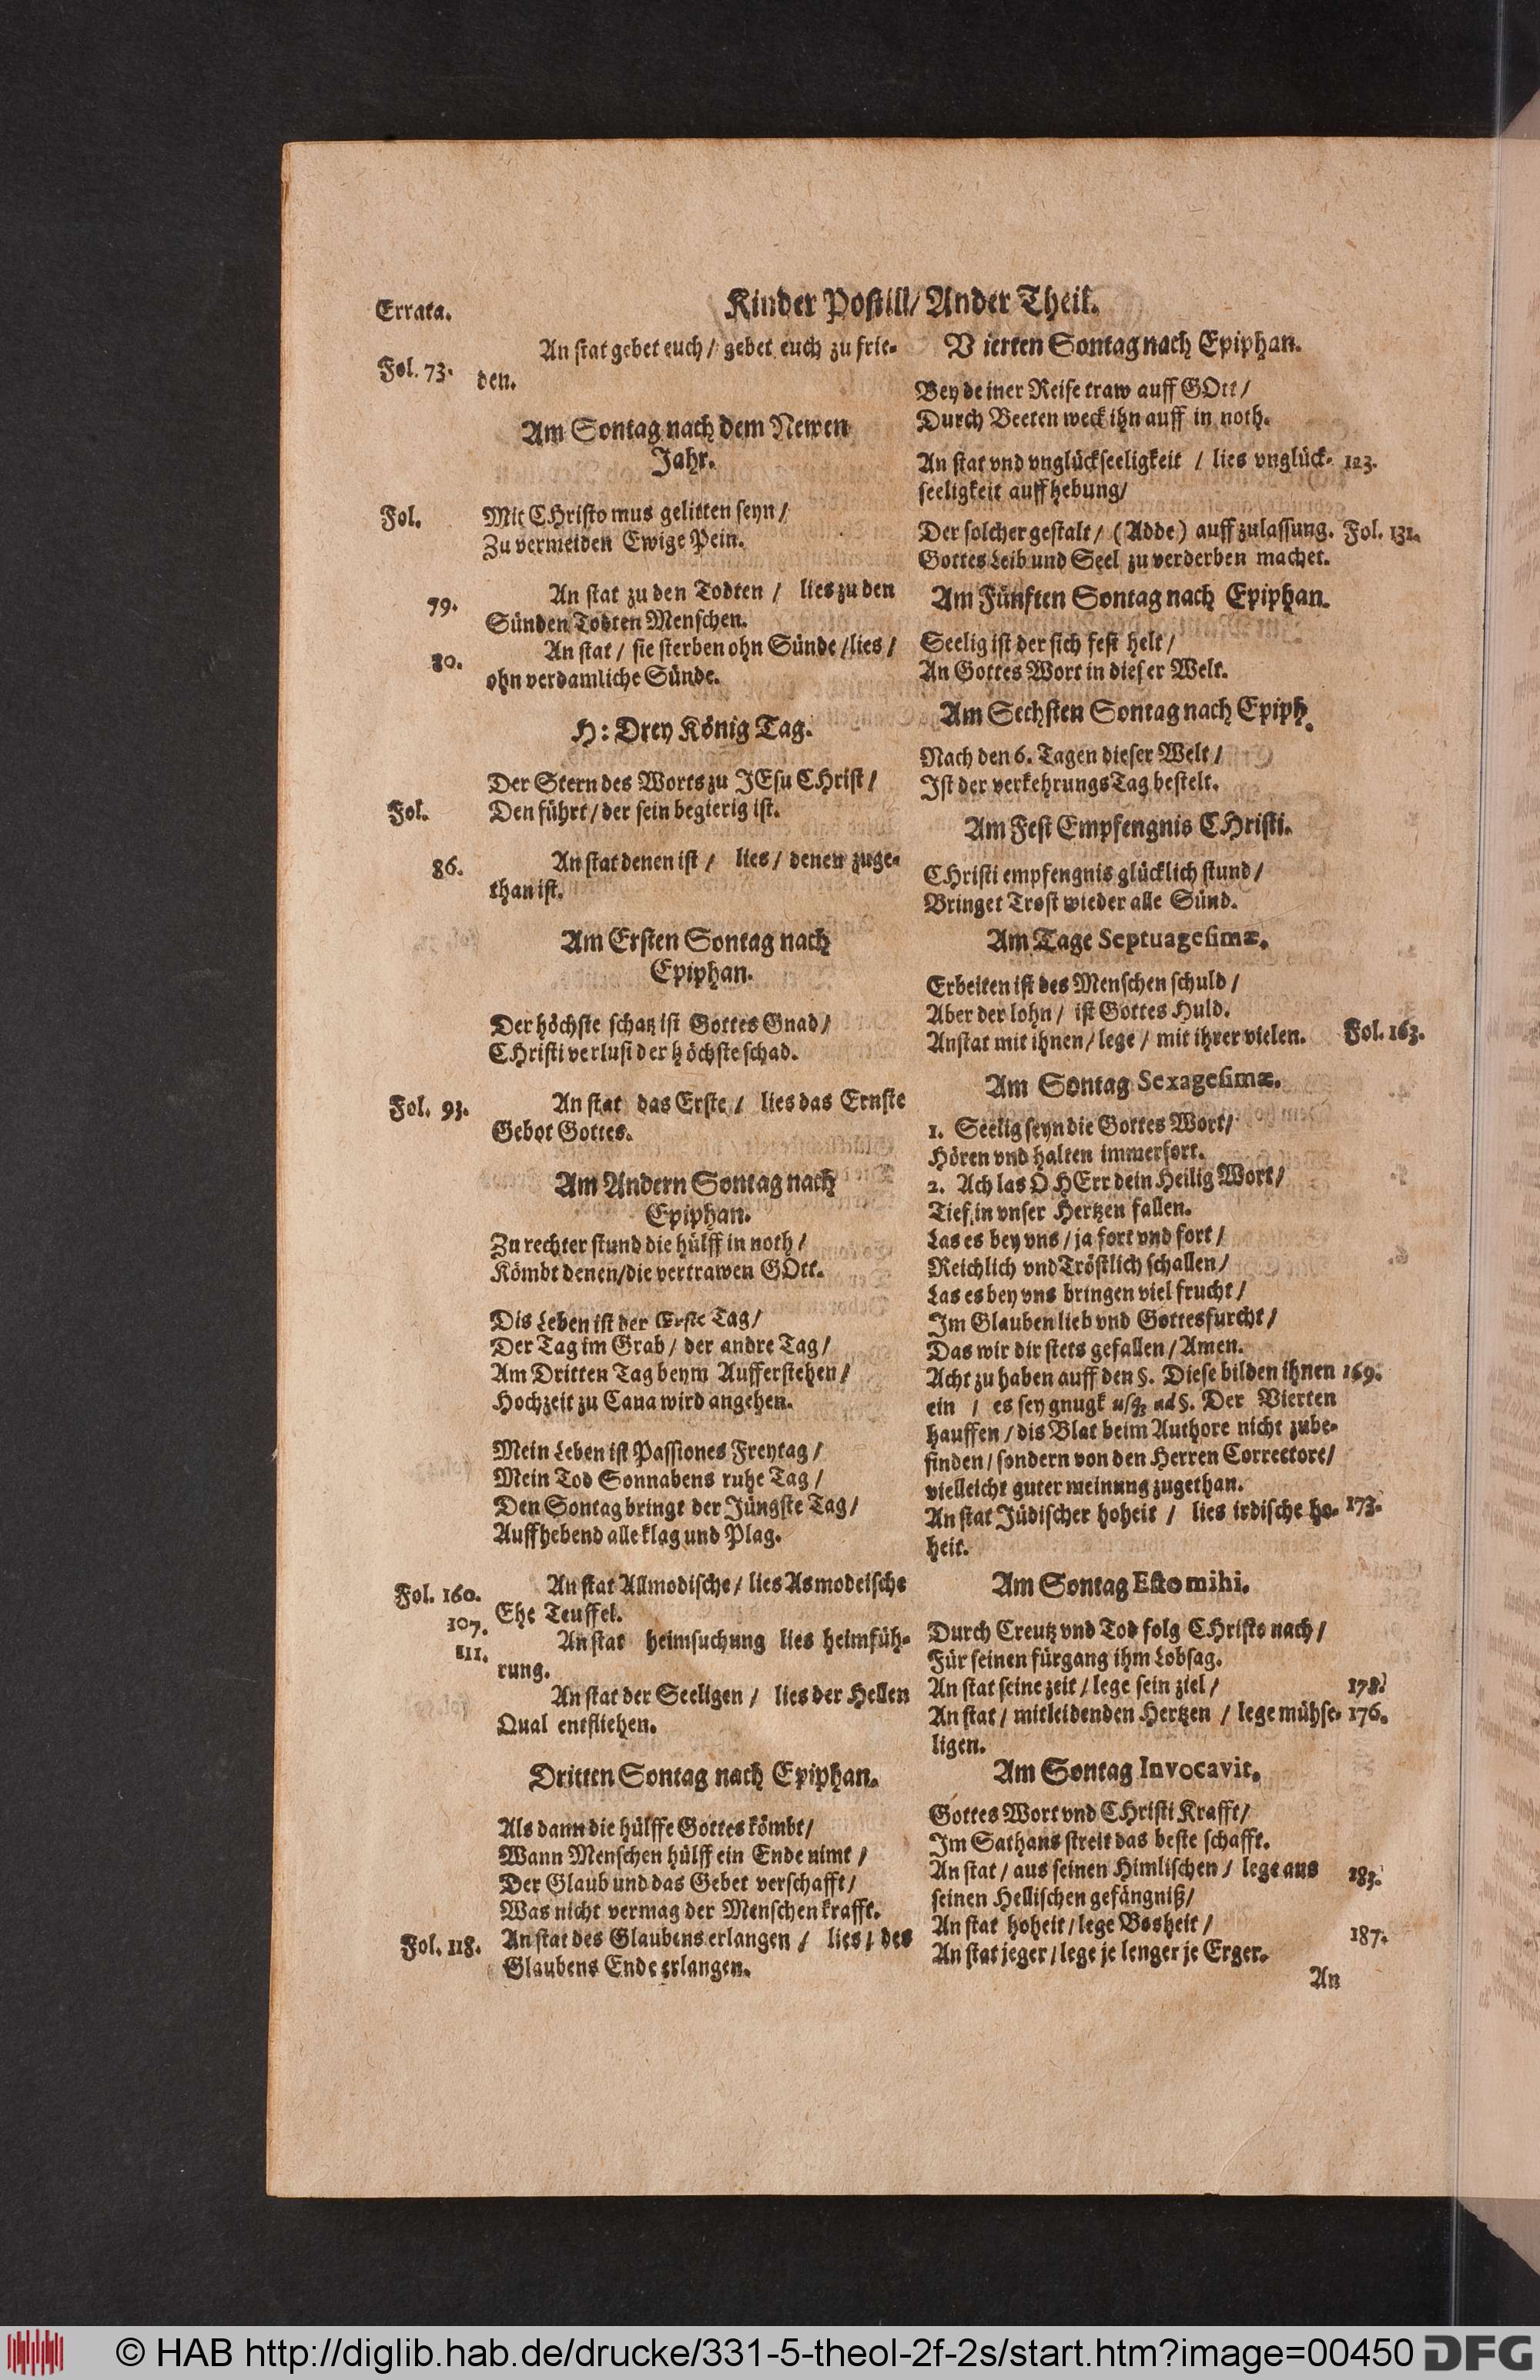 Errata.
Kinder Postill/ Ander Theil.
An stat gebet euch / gebet euch zu frie-
Fol. 73.
den.
Am Sontag nach dem Newen
Jahr.
Fol.
Mit CHristo mus gelitten seyn /
Zu vermeiden Ewige Pein.
79.
An stat zu den Todten / lies zu den
Sünden Todten Menschen.
80.
An stat / sie sterben ohn Sünde / lies /
ohn verdamliche Sünde.
H: Drey König Tag.
Der Stern des Worts zu JEsu CHrist /
Fol.
Den führt / der sein begierig ist.
86.
An stat denen ist / lies / denen zuge-
than ist.
Am Ersten Sontag nach
Epiphan.
Der höchste schatz ist Gottes Gnad /
CHristi verlust der höchste schad.
Fol. 93.
An stat das Erste / lies das Ernste
Gebot Gottes.
Am Andern Sontag nach
Epiphan.
Zu rechter stund die hülff in noth /
Kömbt denen/die vertrawen GOtt.
Dis Leben ist der Erste Tag /
Der Tag im Grab / der andre Tag /
Am Dritten Tag beym Aufferstehen /
Hochzeit zu Cana wird angehen.
Mein Leben ist Passiones Freytag /
Mein Tod Sonnabens ruhe Tag /
Den Sontag bringt der Jüngste Tag /
Auffhebend alle klag und Plag.
Fol. 160.
An stat Allmodische / lies Asmodeische
Ehe Teuffel.
107.
An stat heimsuchung lies heimfüh-
111.
rung.
An stat der Seeligen / lies der Hellen
Qual entfliehen.
Dritten Sontag nach Epiphan.
Als dann die hülffe Gottes kömbt /
Wann Menschen hülff ein Ende nimt /
Der Glaub und das Gebet verschafft /
Was nicht vermag der Menschen krafft.
Fol. 118.
An stat des Glaubens erlangen / lies / des
Glaubens Ende erlangen.
Vierten Sontag nach Epiphan.
Bey deiner Reise traw auff GOtt /
Durch Beeten weck ihn auff in noth.
An stat vnd vnglückseeligkeit / lies vnglück-
123.
seeligkeit auffhebung/
Der solcher gestalt / (Adde) auff zulassung.
Fol. 131.
Gottes Leib und Seel zu verderben machet.
Am Fünften Sontag nach Epiphan.
Seelig ist der sich fest helt /
An Gottes Wort in dieser Welt.
Am Sechsten Sontag nach Epiph.
Nach den 6. Tagen dieser Welt /
Ist der verkehrungs Tag bestelt.
Am Fest Empfengnis CHristi.
CHristi empfengnis glücklich stund /
Bringet Trost wieder alle Sünd.
Am Tage Septuagesimæ.
Erbeiten ist des Menschen schuld /
Aber der lohn / ist Gottes Huld.
Anstat mit ihnen / lege / mit ihrer vielen.
Fol. 163.
Am Sontag Sexagesimæ.
1. Seelig seyn die Gottes Wort /
Hören vnd halten immerfort.
2. Ach las O HErr dein Heilig Wort /
Tief in vnser Hertzen fallen.
Las es bey vns / ja fort vnd fort /
Reichlich vnd Tröstlich schallen /
Las es bey vns bringen viel frucht /
Im Glauben lieb vnd Gottesfurcht /
Das wir dir stets gefallen / Amen.
Acht zu haben auff den §. Diese bilden ihnen
169.
ein / es sey gnugk usq; ad §. Der Vierten
hauffen / dis Blat beim Authore nicht zube-
finden / sondern von den Herren Correctore /
vielleicht guter meinung zugethan.
An stat Jüdischer hoheit / lies irdische ho-
173.
heit.
Am Sontag Esto mihi.
Durch Creutz vnd Tod folg CHristo nach /
Für seinen fürgang ihm Lobsag.
An stat seine zeit / lege sein ziel /
178.
An stat / mitleidenden Hertzen / lege mühse-
176.
ligen.
Am Sontag Invocavit.
Gottes Wort vnd CHristi Krafft /
Im Sathans streit das beste schafft.
An stat / aus seinen Himlischen / lege aus
183.
seinen Hellischen gefängniß /
An stat hoheit / lege Bosheit /
187.
An stat jeger / lege je lenger je Erger.
An
© HAB http://diglib.hab.de/drucke/331-5-theol-2f-2s/start.htm?image=00450
DFG